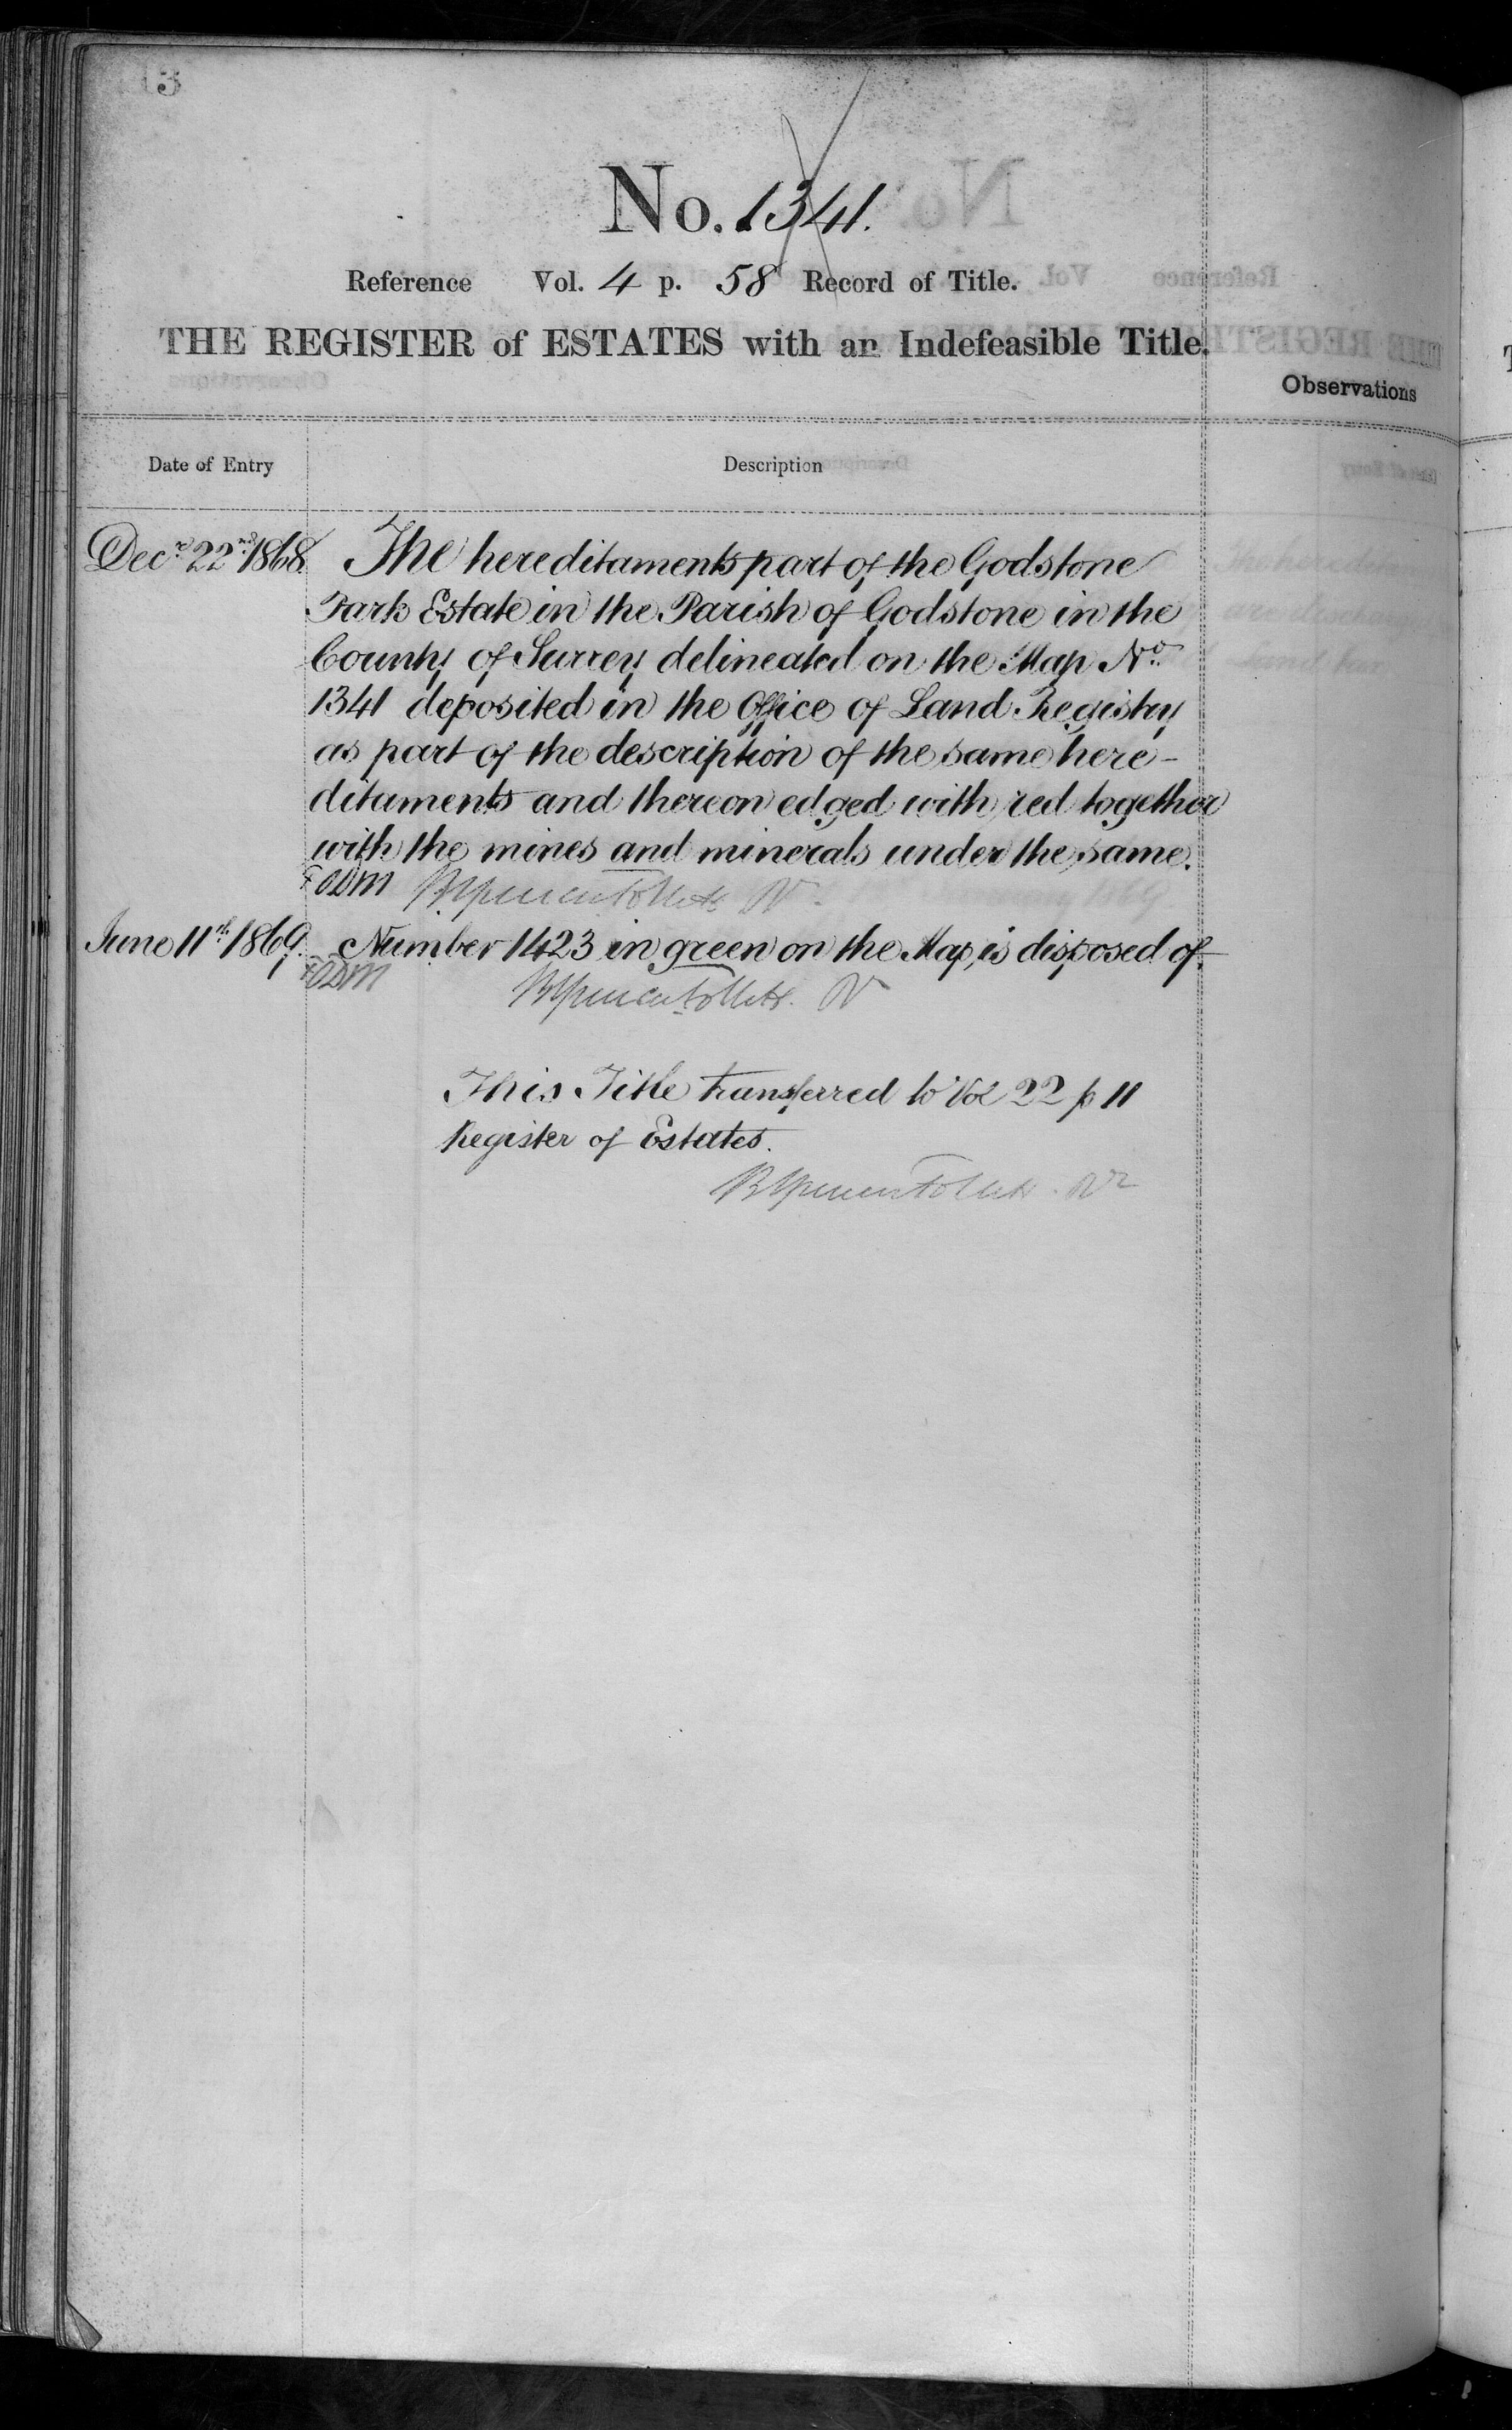 No. 1341.
Reference Vol. 4 p. 58 Record of Title.
THE REGISTER of ESTATES with an Indefeasible Title.
Observations
Date of Entry Description
Decr 22nd 1868 The hereditaments part of the Godstone
Park Estate in the Parish of Godstone in the
County of Surrey delineated on the Map No.
1341 deposited in the Office of Land Registry
as part of the description of the same here-
ditaments and thereon edged with red together
with the mines and minerals under the same.
June 11th 1869. Number 1423 in green on the Map, is disposed of
This Title transferred to Vol 22 p 11
Register of Estates.